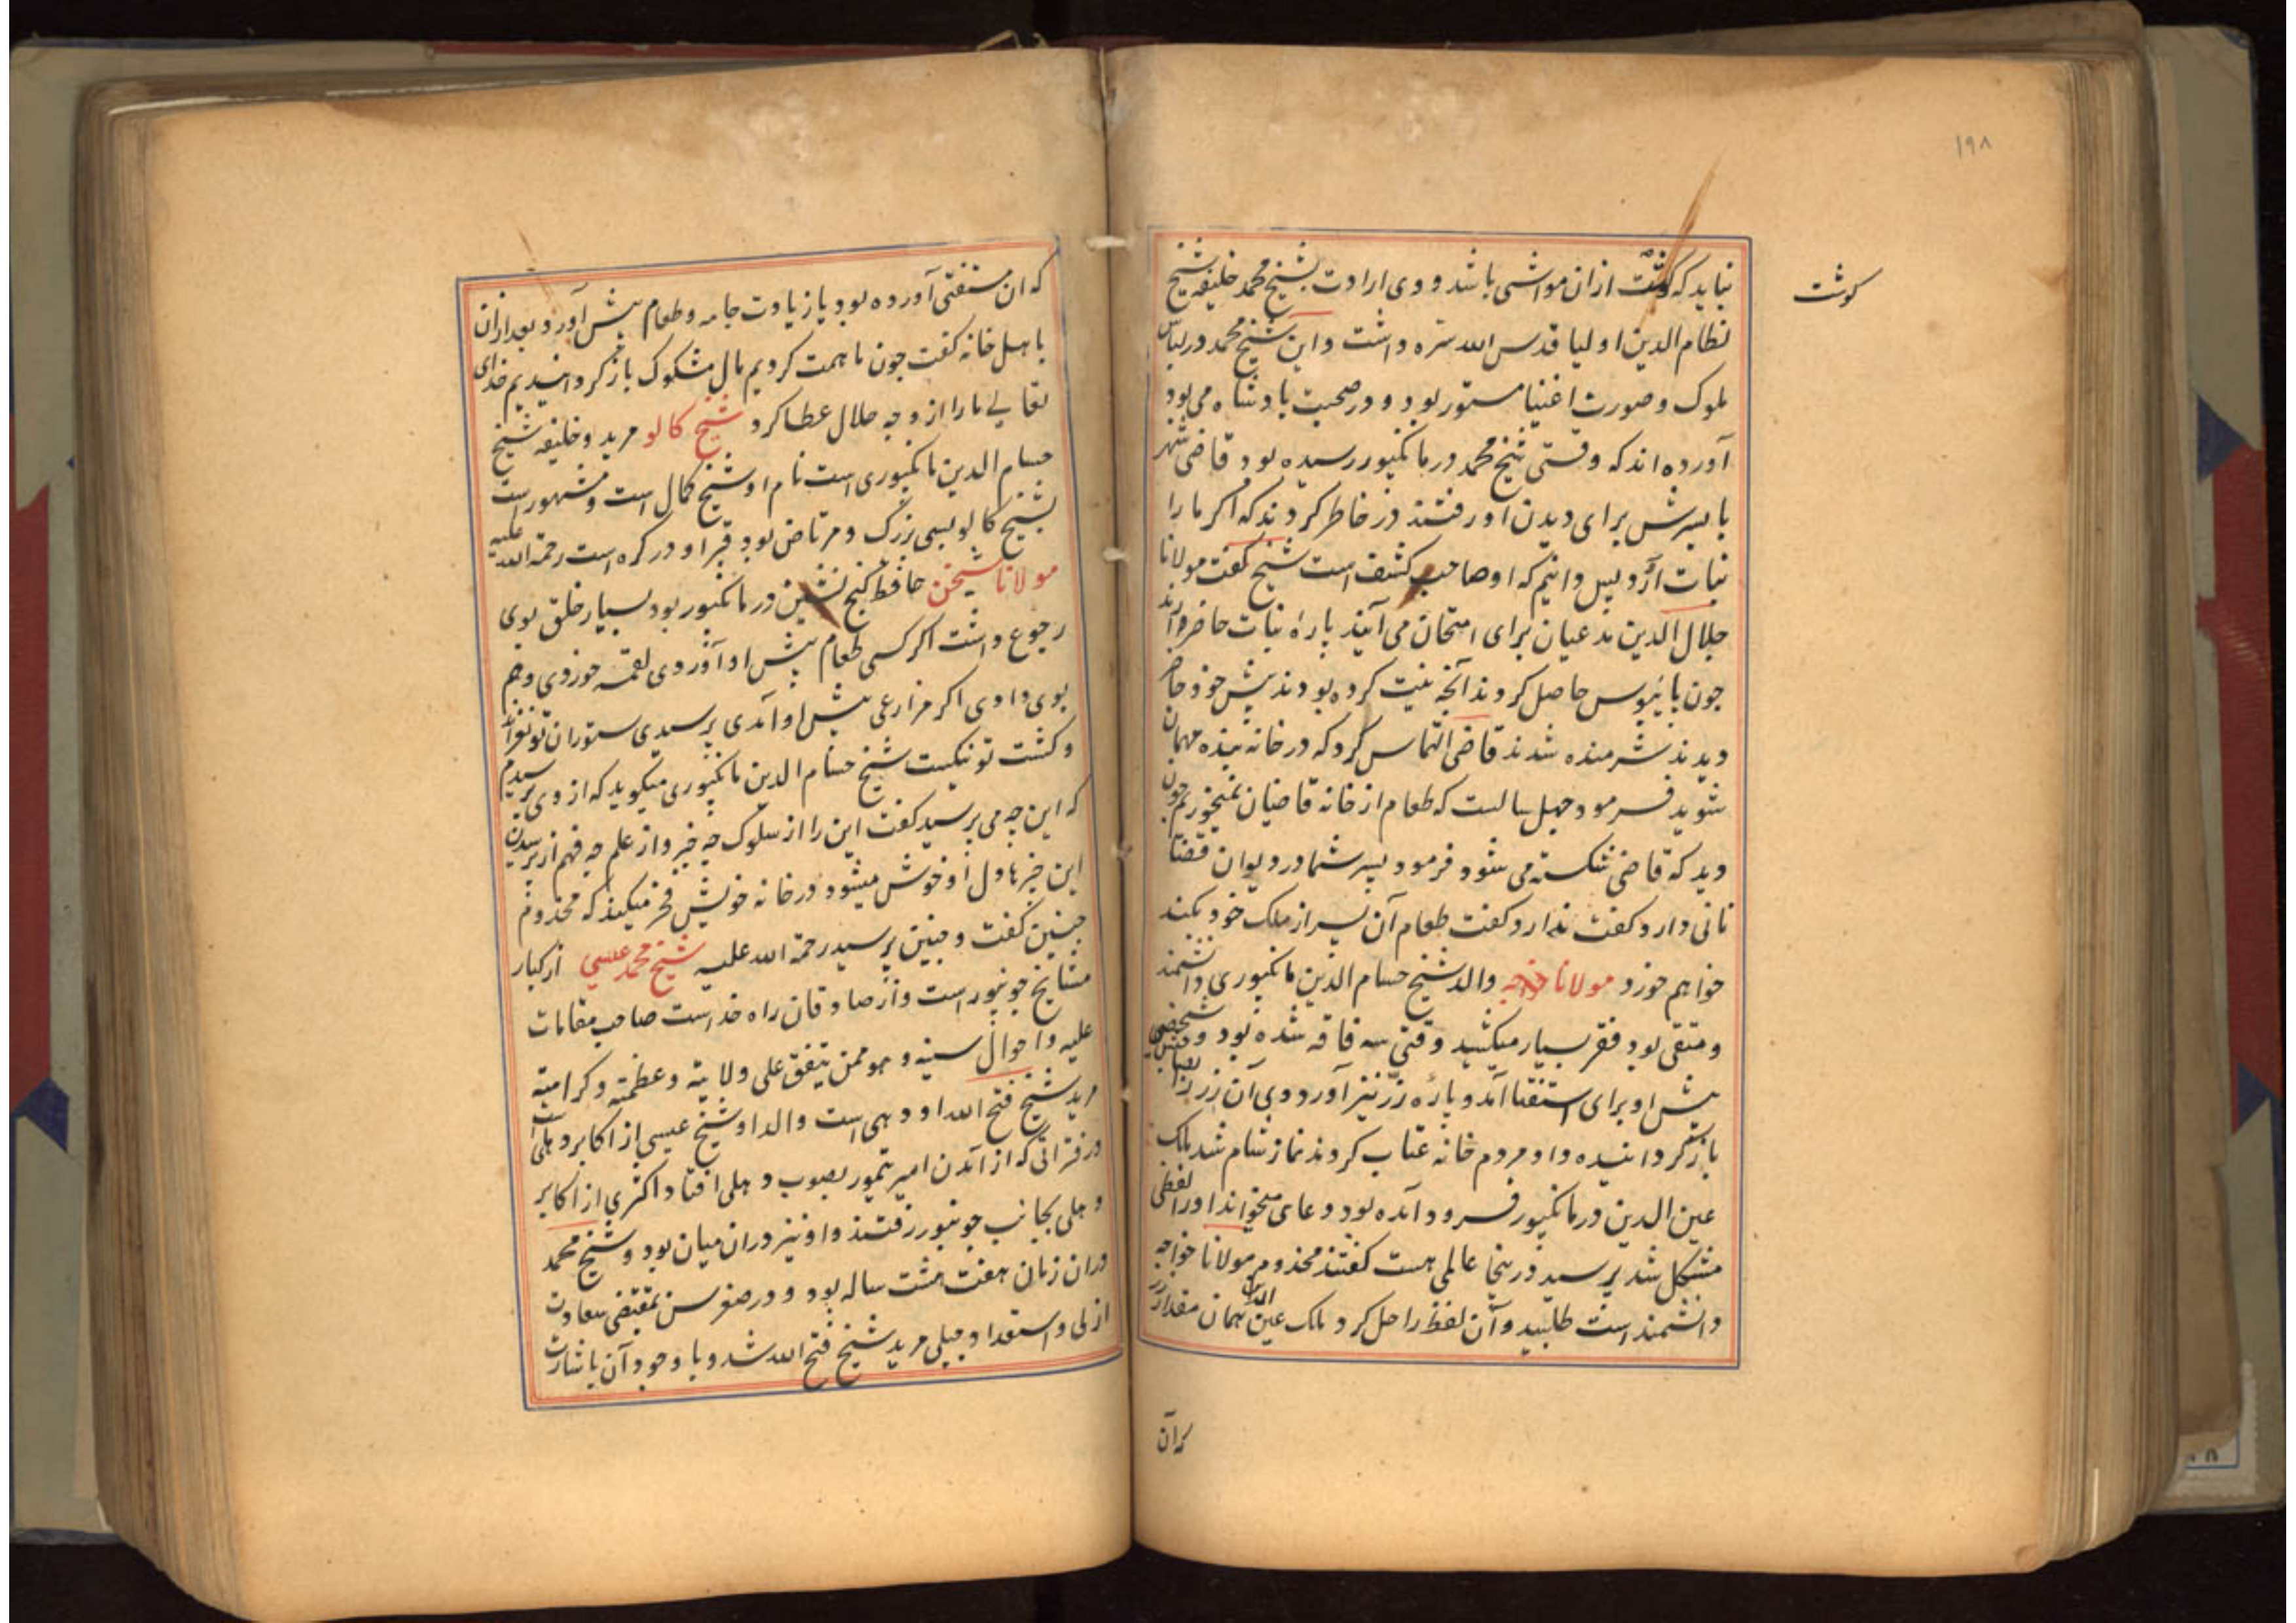 ۱۹۸
نباید که گوشت ازان مواشی باشد و وی ارادت بشیخ محمد خلیفه شیخ
کوشت
نظام الدین اولیا قدس الله سره داشت و این شیخ محمد در لباس
ملوک و صورت اغنیا مستور بود و در صحبت بادشاه می بود
آورده اند که وقتی شیخ محمد در مانکپور رسیده بود قاضی شهر
با پسرش برای دیدن او رفتند در خاطر کردند که اکر ما را
نبات آرد پس دانیم که او صاحب کشف است شیخ کفت مولانا
جلال الدین مدعیان برای امتحان می آیند پاره نبات حاضر آرند
چون پایبوس حاصل کردند آنچه نیت کرده بودند پیش خود حاضر
دیدند شرمنده شدند قاضی التماس کرد که در خانه بنده مهمان
شوید فرمود چهل سالست که طعام از خانه قاضیان نمیخورم چون
دید که قاضی شکسته می شود فرمود پسر شما در دیوان قضا
نانی دارد کفت ندارد کفت طعام آن پسر از ملک خود بکند
خواهم خورد مولانا خواجه والد شیخ حسام الدین مانکپوری دانشمند
و متقی بود فقر بسیار میکشید وقتی سه فاقه شده بود و شخصی
پیش او برای استفتا آمد و پاره زر نیز آورد وی آن زر را
باز کردانیده داد مردم خانه عتاب کردند نماز شام شد ملک
عین الدین در مانکپور فرود آمده بود دعای میخواند او را لفظی
مشکل شد پرسید درینجا عالمی هست کفتند مخدوم مولانا خواجه
دانشمند است طلبید و آن لفظ را حل کرد ملک عین الدین همان مقدار زر
که آن
که ان مستفتی آورده بود با زیادت جامه و طعام پیش آورد بعد ازان
با هل خانه کفت چون ما همت کردیم مال مشکوک باز کردانیدیم خدای
تعالی ما را از وجه حلال عطا کرد شیخ کالو مرید و خلیفه شیخ
حسام الدین مانکپوری است نام او شیخ کمال است و مشهور است
بشیخ کالو بسی بزرک و مرتاض بود قبر او در کره است رحمة الله علیه
مولانا شیخن حافظ کنج نشین در مانکپور بود بسیار خلق بوی
رجوع داشت اکر کسی طعام پیش او آوردی لقمه خوردی و هم
بوی دادی اکر مزارعی پیش او آمدی پرسیدی ستوران تو نغزاند
و کشت تو نیکست شیخ حسام الدین مانکپوری میکوید که از وی پرسیدم
که این چه می پرسید کفت این را از سلوک چه خبر و از علم چه فهم از پرسیدن
این چیزها دل او خوش میشود در خانه خویش فخر میکند که مخدوم
چنین کفت و چنین پرسید رحمة الله علیه شیخ محمد عیسی از کبار
مشایخ جونپور است و از صادقان راه خداست صاحب مقامات
علیه و احوال سنیه و هو ممن یتفق علی ولایته و عظمته و کرامته
مرید شیخ فتح الله اودهی است والد او شیخ عیسی از اکابر دهلی است
در فتراتی که از آمدن امیر تیمور بصوب دهلی افتاد اکثری از اکابر
دهلی بجانب جونپور رفتند و او نیز دران میان بود و شیخ محمد
دران زمان هفت هشت ساله بود و در صغر سن بمقتضی سعادت
ازلی و استعداد جبلی مرید شیخ فتح الله شد و با وجود آن باشارت